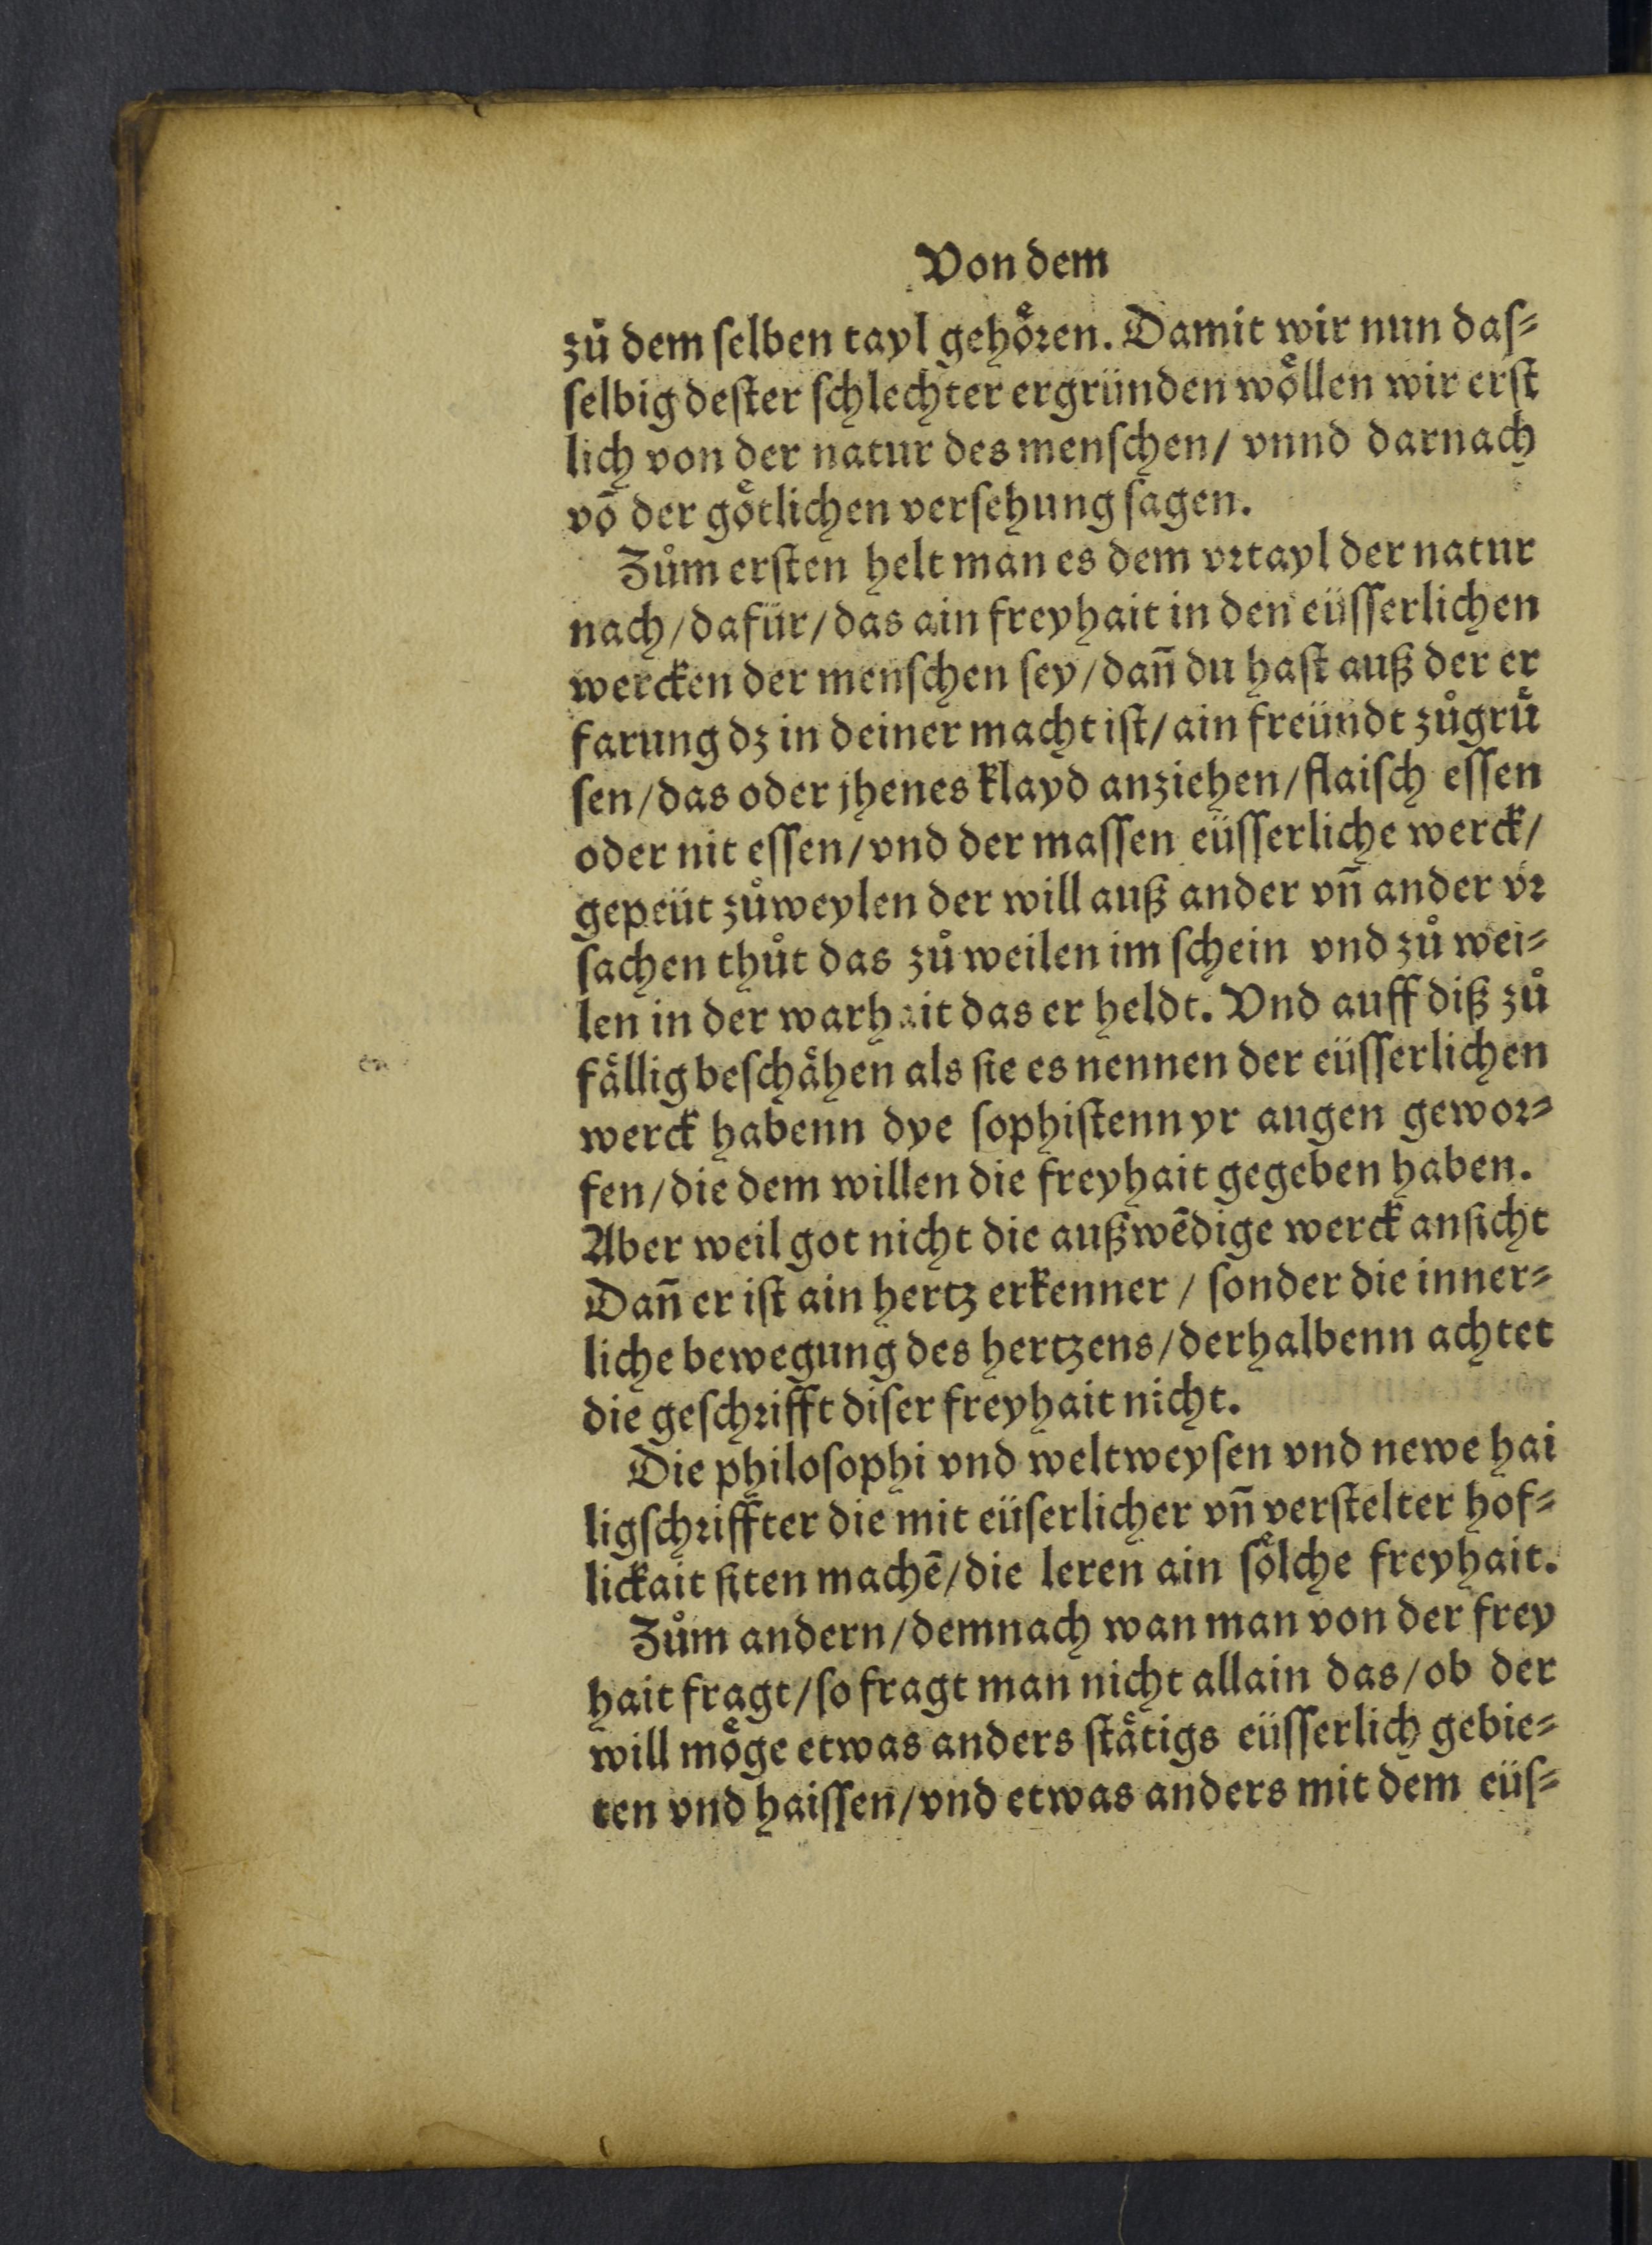 Von dem
zů dem ſelben tayl gehoͤꝛen. Damit wir nun daſ⸗
ſelbig deſter ſchlechter ergründen woͤllen wir erſt
lich von der natur des menſchen/ vnnd darnach
vō der goͤtlichen verſehung ſagen.
Zům erſten helt man es dem vꝛtayl der natur
nach/dafür/das ain freyhait in den eüſſerlichen
wercken der menſchen ſey/dañ du haſt auß der er
farung dz in deiner macht iſt/ain freündt zůgruͤ
ſen/das oder jhenes klayd anziehen/flaiſch eſſen
oder nit eſſen/vnd der maſſen eüſſerliche werck/
gepeüt zůweylen der will auß ander vñ ander vꝛ
ſachen thůt das zů weilen im ſchein vnd zů wei⸗
len in der warhait das er heldt. Vnd auff diß zů
faͤllig beſchaͤhen als ſie es nennen der eüſſerlichen
werck habenn dye ſophiſtenn yr augen gewoꝛ⸗
fen/die dem willen die freyhait gegeben haben.
Aber weil got nicht die außwēdige werck anſicht
Dañ er iſt ain hertz erkenner / ſonder die inner⸗
liche bewegung des hertzens/derhalbenn achtet
die geſchꝛifft diſer freyhait nicht.
Die philoſophi vnd weltweyſen vnd newe hai
ligſchꝛiffter die mit eüſerlicher vñ verſtelter hof⸗
lickait ſiten machē/die leren ain ſoͤlche freyhait.
Zům andern/demnach wan man von der frey
hait fragt/ſo fragt man nicht allain das/ob der
will moͤge etwas anders ſtaͤtigs eüſſerlich gebie⸗
ten vnd haiſſen/vnd etwas anders mit dem eüſ⸗